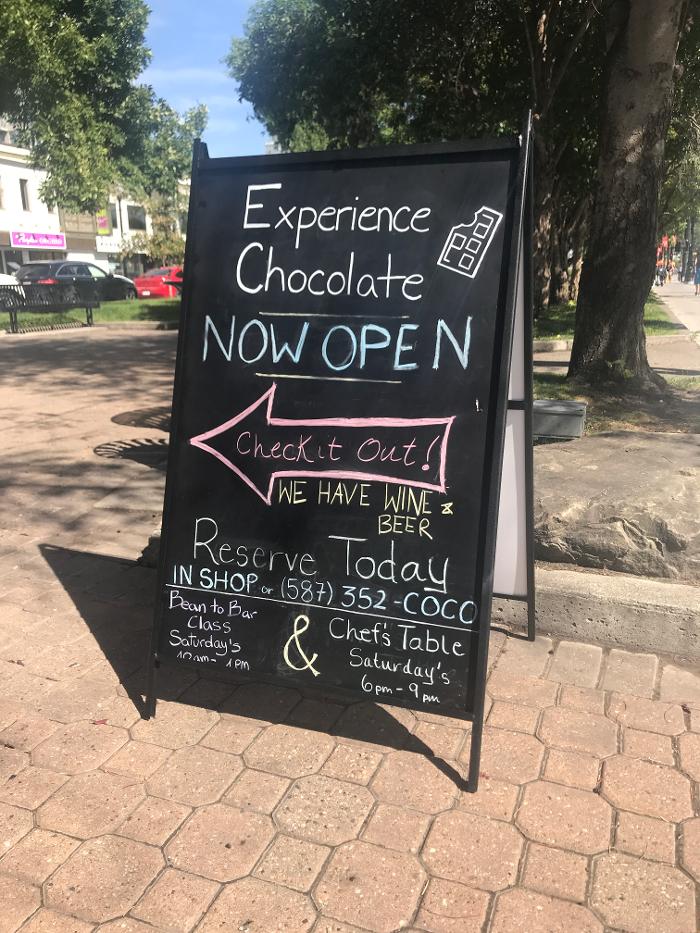 Experience
Chocolate
NOW OPEN
Check it Out!
WE HAVE WINE &
BEER
Reserve Today
IN SHOP or (587) 352-COCO
Bean to Bar
Class
Saturday's
10am - 1pm
&
Chef's Table
Saturday's
6pm - 9pm